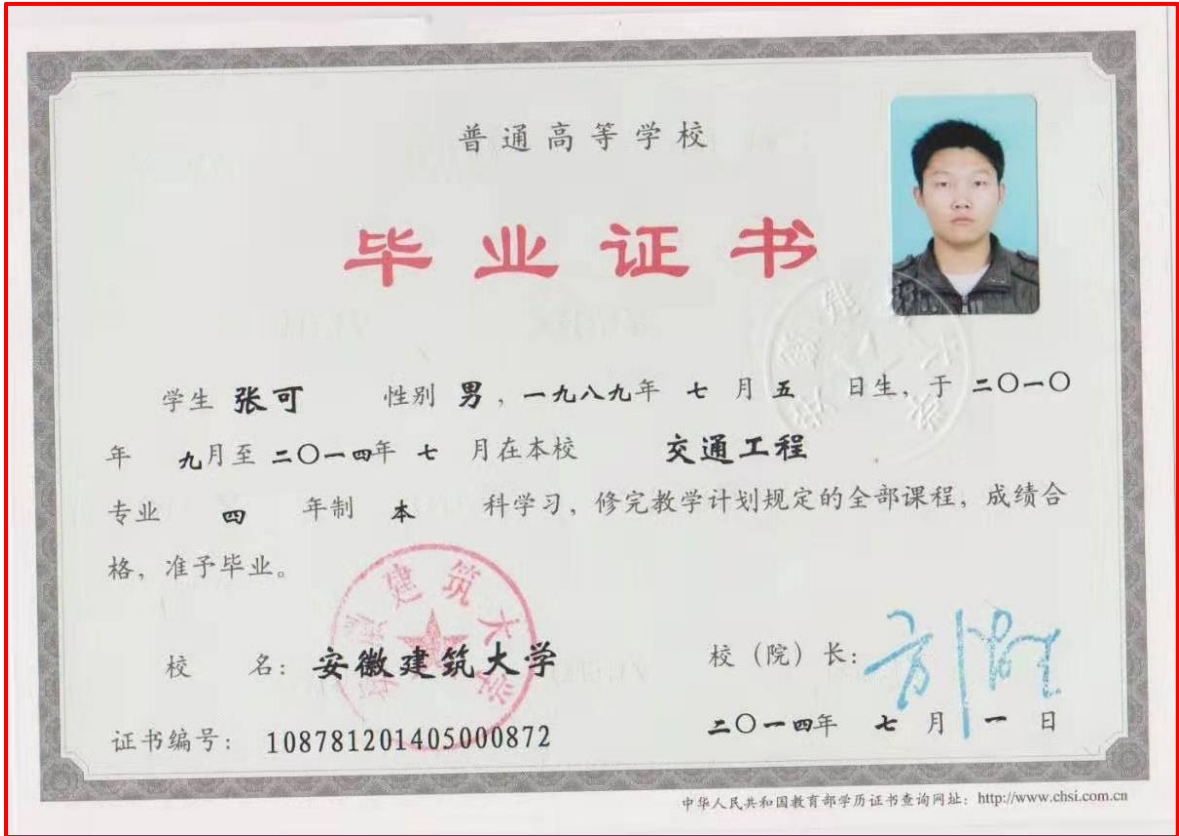 普通高等学校
毕业证书
学生 张可 性别 男，一九八九年 七 月 五 日生，于 二〇一〇
年 九月至 二〇一四年 七 月在本校 交通工程
专业 四 年制 本 科学习，修完教学计划规定的全部课程，成绩合
格，准予毕业。
建筑大
校 名：安徽建筑大学 校（院）长：
二〇一四年 七 月 一 日
证书编号：108781201405000872
中华人民共和国教育部学历证书查询网址：http://www.chsi.com.cn